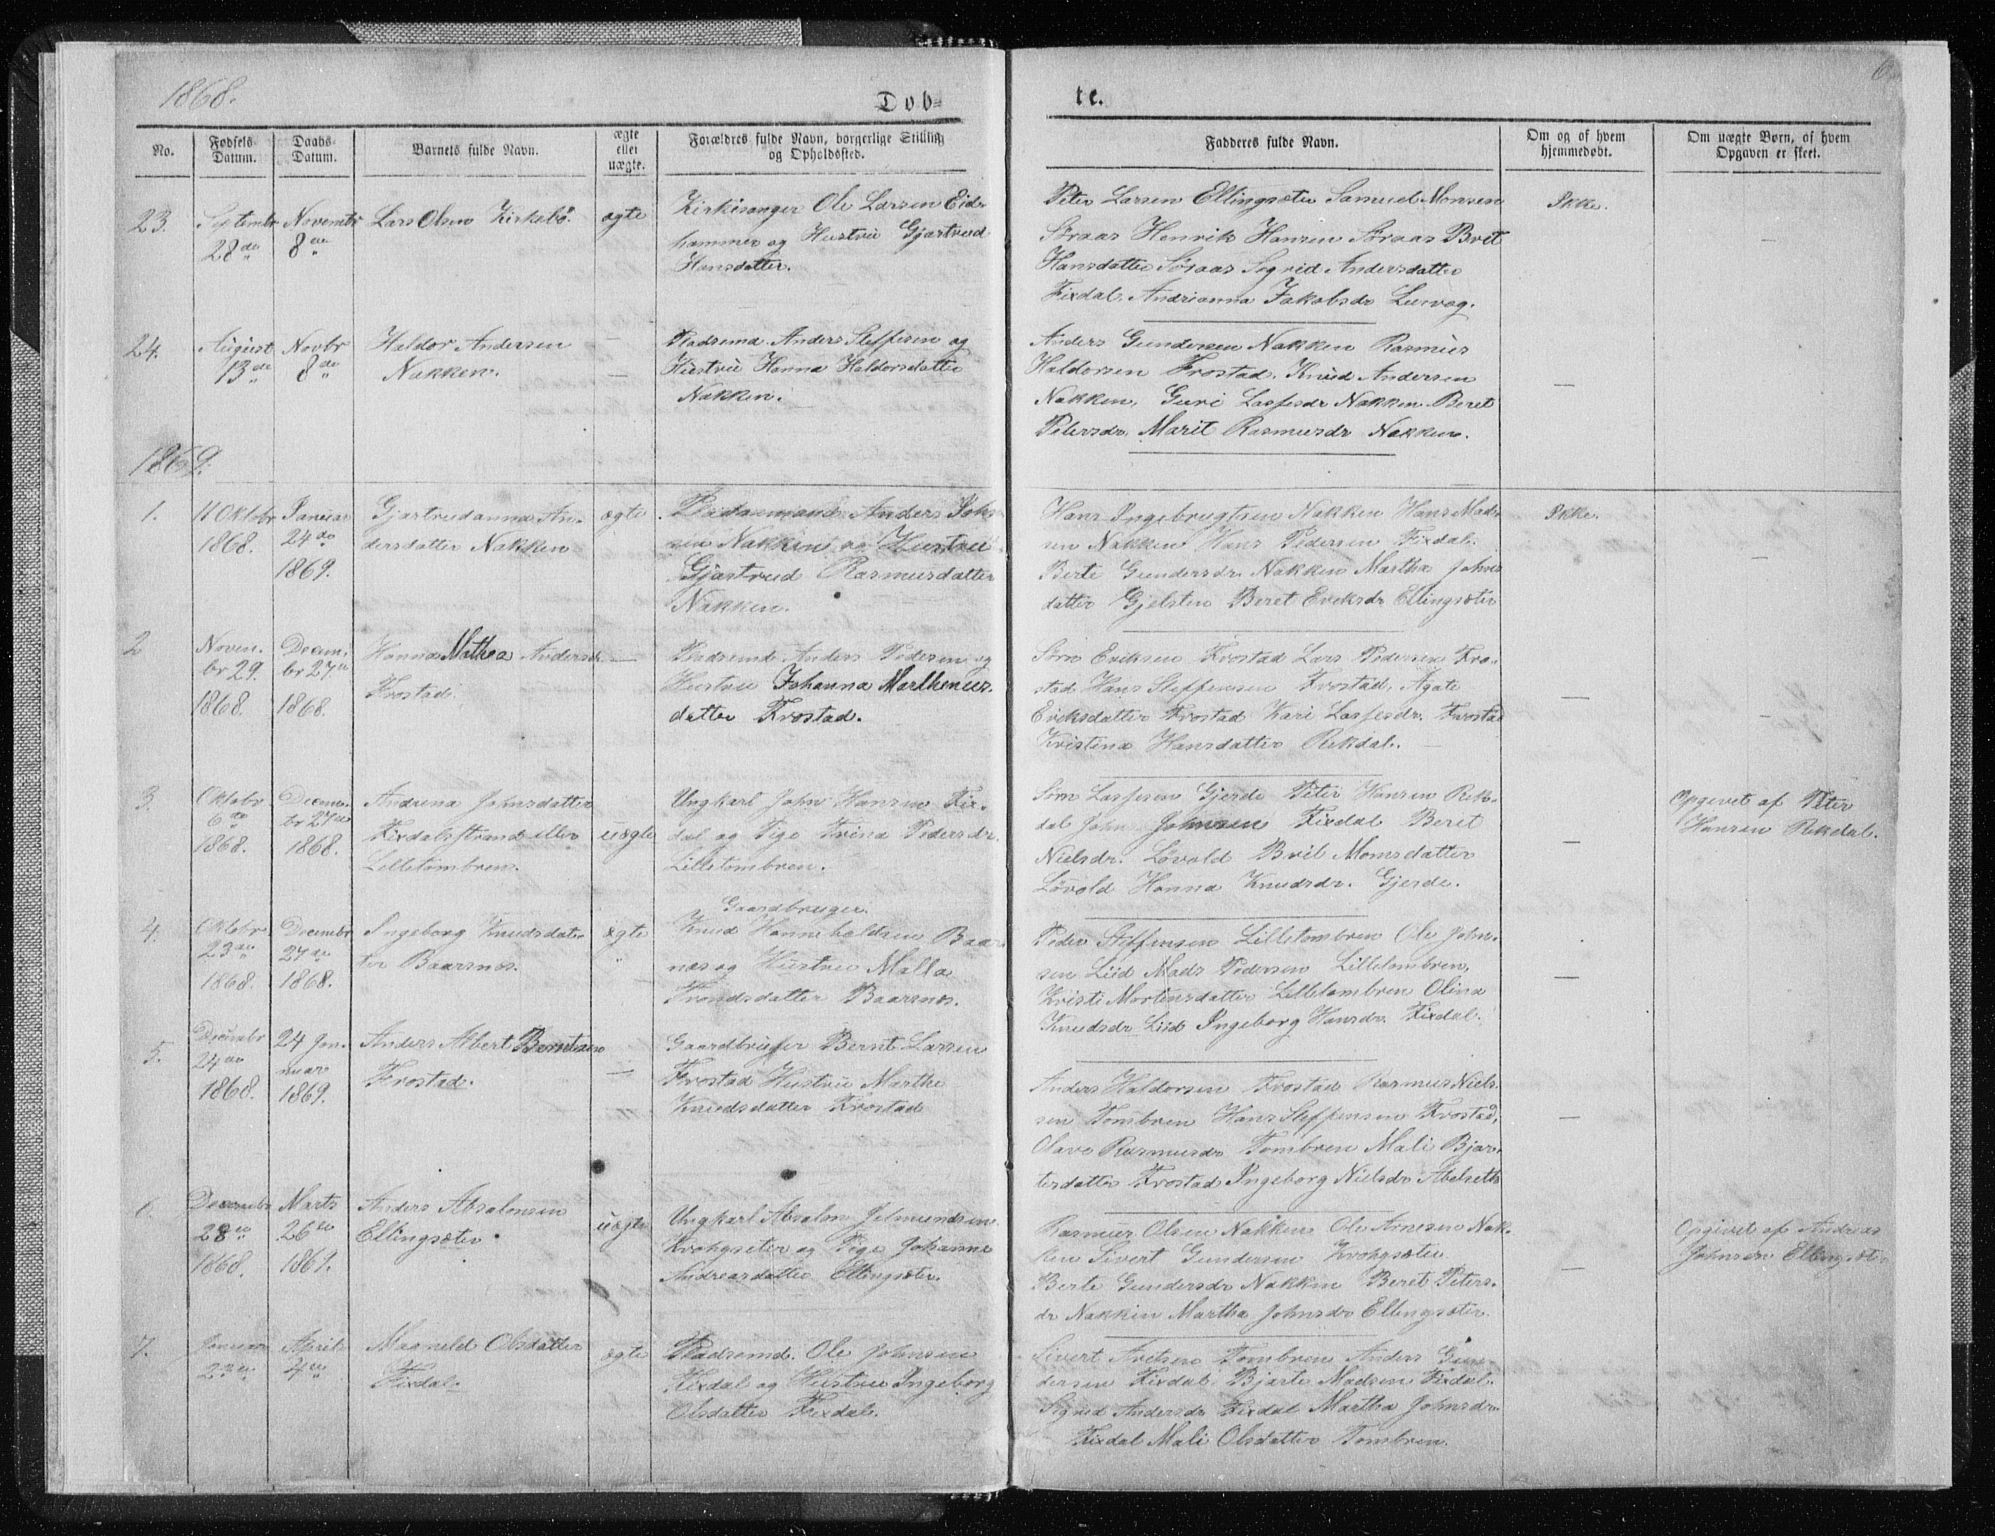 1868.
Døb-
te.
6
No.
Fødsels Datum.
Daabs-Datum.
Barnets fulde Navn.
ægte eller uægte.
Forældres fulde Navn, borgerlige Stilling og Opholdssted.
Fadderes fulde Navn.
Om og af hvem hjemmedøbt.
Om uægte Børn, af hvem Opgaven er skeet.
23.
Septembr
28de
Novembr
8de
Lars Olsen Kirkebø.
ægte
Kirkesanger Ole Larsen Eids-
hammer og Hustru Gjertrud
Hansdatter.
Peter Larsen Ellingsæter Samuel Monsen
Søraas Henrik Hansen Søraas Brit
Hansdatter Søraas Sigrid Andersdatter
Fixdal. Andrianna Jakobsdr Lervog.
Ikke.
—
24.
August
13de
Novbr
8de
Haldor Andersen
Nakken.
—
Pladsmd Anders Steffesen og
Hustru Hanna Haldorsdatter
Nakken.
Anders Gundersen Nakken Rasmus
Haldorsen Frostad. Knud Andersen
Nakken, Guri Lassesdr Nakken Beret
Petersdr. Marit Rasmusdr Nakken.
—
1869.
1.
11 Oktobr
1868.
Januar
24de
1869.
Gjertrudanna An-
dersdatter Nakken
ægte
Pladsmand Anders Joh-
sen Nakken og Hustru
Gjertrud Rasmusdatter
Nakken.
Hans Ingebrigtsen Nakken Hans Mad-
sen Nakken Hans Pedersen Fixdal.
Berte Gundersdr. Nakken Martha Johns
datter Gjelsten Beret Eriksdr Ellingsæter
Ikke.
—
2
Novem-
br 29.
1868.
Decem-
br 27de
1868.
Hanna Mathea Andersdr
Frostad.
—
Pladsmd. Anders Pedersen og
Hustru Johanna Marthenus-
datter Frostad.
Sørn Eriksen Frostad Lars Pedersen Fro-
stad Hans Steffensen Frostad, Agate
Eriksdatter Frostad Kari Lassesdr. Frostad
Kristina Hansdatter Rekdal.
—
—
3.
Oktobr
6te
1868.
Decem-
br 27de
1868.
Andrena Johnsdatter
Fixdalsstrand eller
Lilletombren.
uægte
Ungkarl John Hansen Fix-
dal og Pige Trina Pedersdr.
Lilletombren.
Sørn Lassesen Gjerde Peter Hansen Rek-
dal John Johnsen Fixdal Beret
Nielsdr. Løvold Brit Monsdatter
Løvold Hanna Knudsdr. Gjerde.
—
Opgivet af Peter
Hansen Rekdal.
4.
Oktobr
23de
1868.
Decembr
27de
1868.
Ingeborg Knudsdat-
ter Baarsnes.
ægte
Gaardbruger
Knud Hanneholdsen Baar-
nes og Hustru Malla
Trondsdatter Baarsnes.
Peder Steffensen Lilletombren Ole John-
sen Liid Mads Pedersen Lilletombren,
Kristi Mortensdatter Lilletombren Olina
Knudsdr Liid Ingeborg Hansdr. Fixdal.
—
5.
Decembr
24de
1868.
24 Jan-
uar
1869.
Anders Albert Berntsen
Frostad.
—
Gaardbruger Bernt Larsen
Frostad Hustru Marthe
Knudsdatter Frostad
Anders Haldorsen Frostad Rasmus Niels-
sen Tombren Hans Steffensen Frostad,
Olave Rasmusdr Tombren Mali Bjar-
tesdatter Frostad Ingeborg Nielsdr Abelseth
—
6.
Decembr
28de
1868.
Marts
26de
1869.
Anders Absalonsen
Ellingsæter
uægte
Ungkarl Absalon Jetmundsen
Krohgseter og Pige Johanne
Andreasdatter Ellingsæter.
Rasmus Olsen Nakken Ole Arnesen Nak-
ken Sivert Gundersen Krohgsæter
Berte Gundersdr Nakken Beret Peters-
dr Nakken Martha Johnsdr Ellingsæter.
—
Opgivet af Andreas
Johnsen Ellingsæter
7.
Januar
Aprili
4de
Magnild Olsdatter
Fixdal.
ægte
Pladsmd. Ole Johnsen
Fixdal og Hustru Ingeborg
Olsdatter Fixdal.
Sivert Tombren Anders Gun-
dersen Fixdal. Bjarte Madsen Fixdal.
Sigrid Andersdr Fixdal Martha Johnsdr.
Fixdal Mali Olsdatter Tombren.